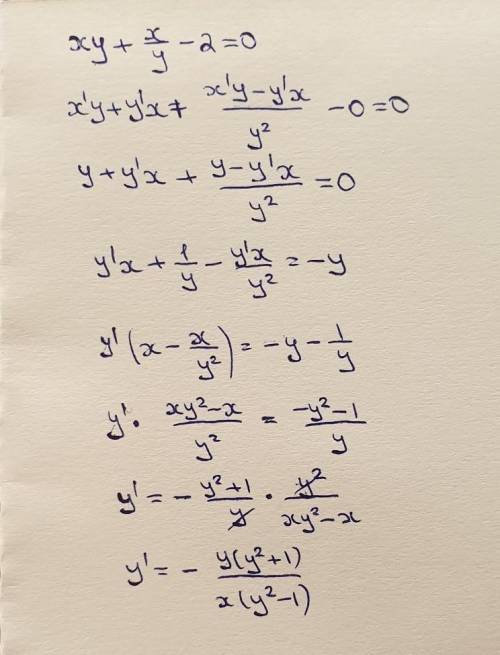 xy + x/y - 2 = 0
x'y + y'x + (x'y - y'x)/y² - 0 = 0
y + y'x + (y - y'x)/y² = 0
y'x + 1/y - y'x/y² = -y
y' (x - x/y²) = -y - 1/y
y' · (xy² - x)/y² = (-y² - 1)/y
y' = - (y² + 1)/y · y²/(xy² - x)
y' = - y(y² + 1)/x(y² - 1)